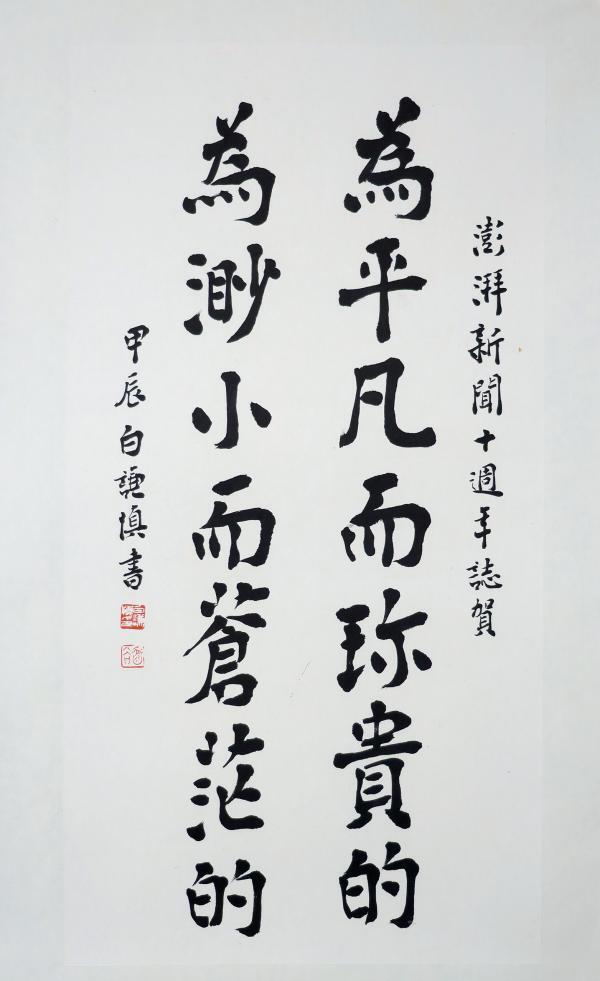 澎湃新聞十週年誌賀
為平凡而珎貴的
為渺小而蒼茫的
甲辰白謙慎書